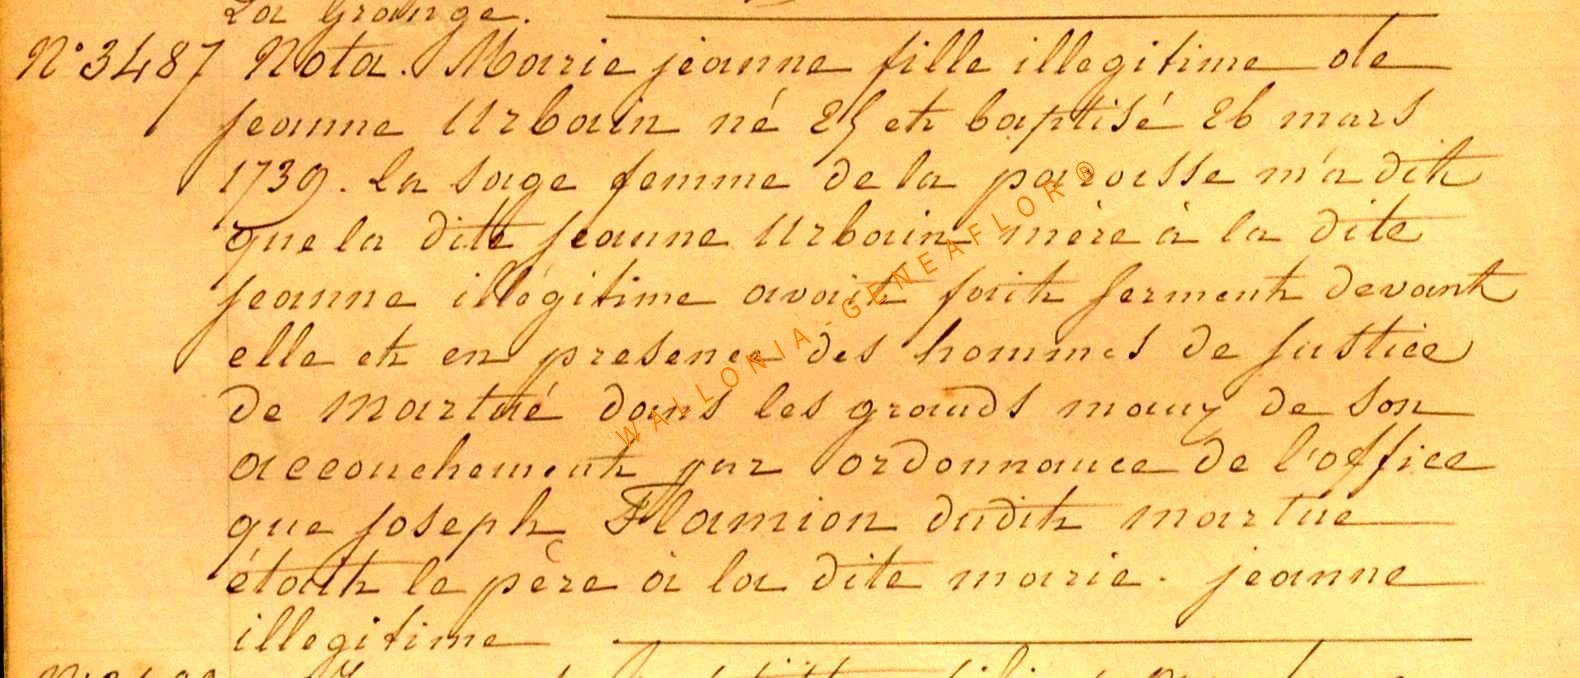 La Grange.
N° 3487 Nota. Marie jeanne fille illegitime de
jeanne Urbain né 25 et baptisé 26 mars
1739. la sage femme de la paroisse m'a dit
que la dite jeanne Urbain mère à la dite
jeanne illégitime avait fait serment devant
elle et en presence des hommes de justice
de Martué dans les grands maux de son
accouchement par ordonnance de l'office
que joseph Flamion dudit martué
était le père à la dite marie. jeanne
illegitime
WALLONIA-GENEAFLOR®